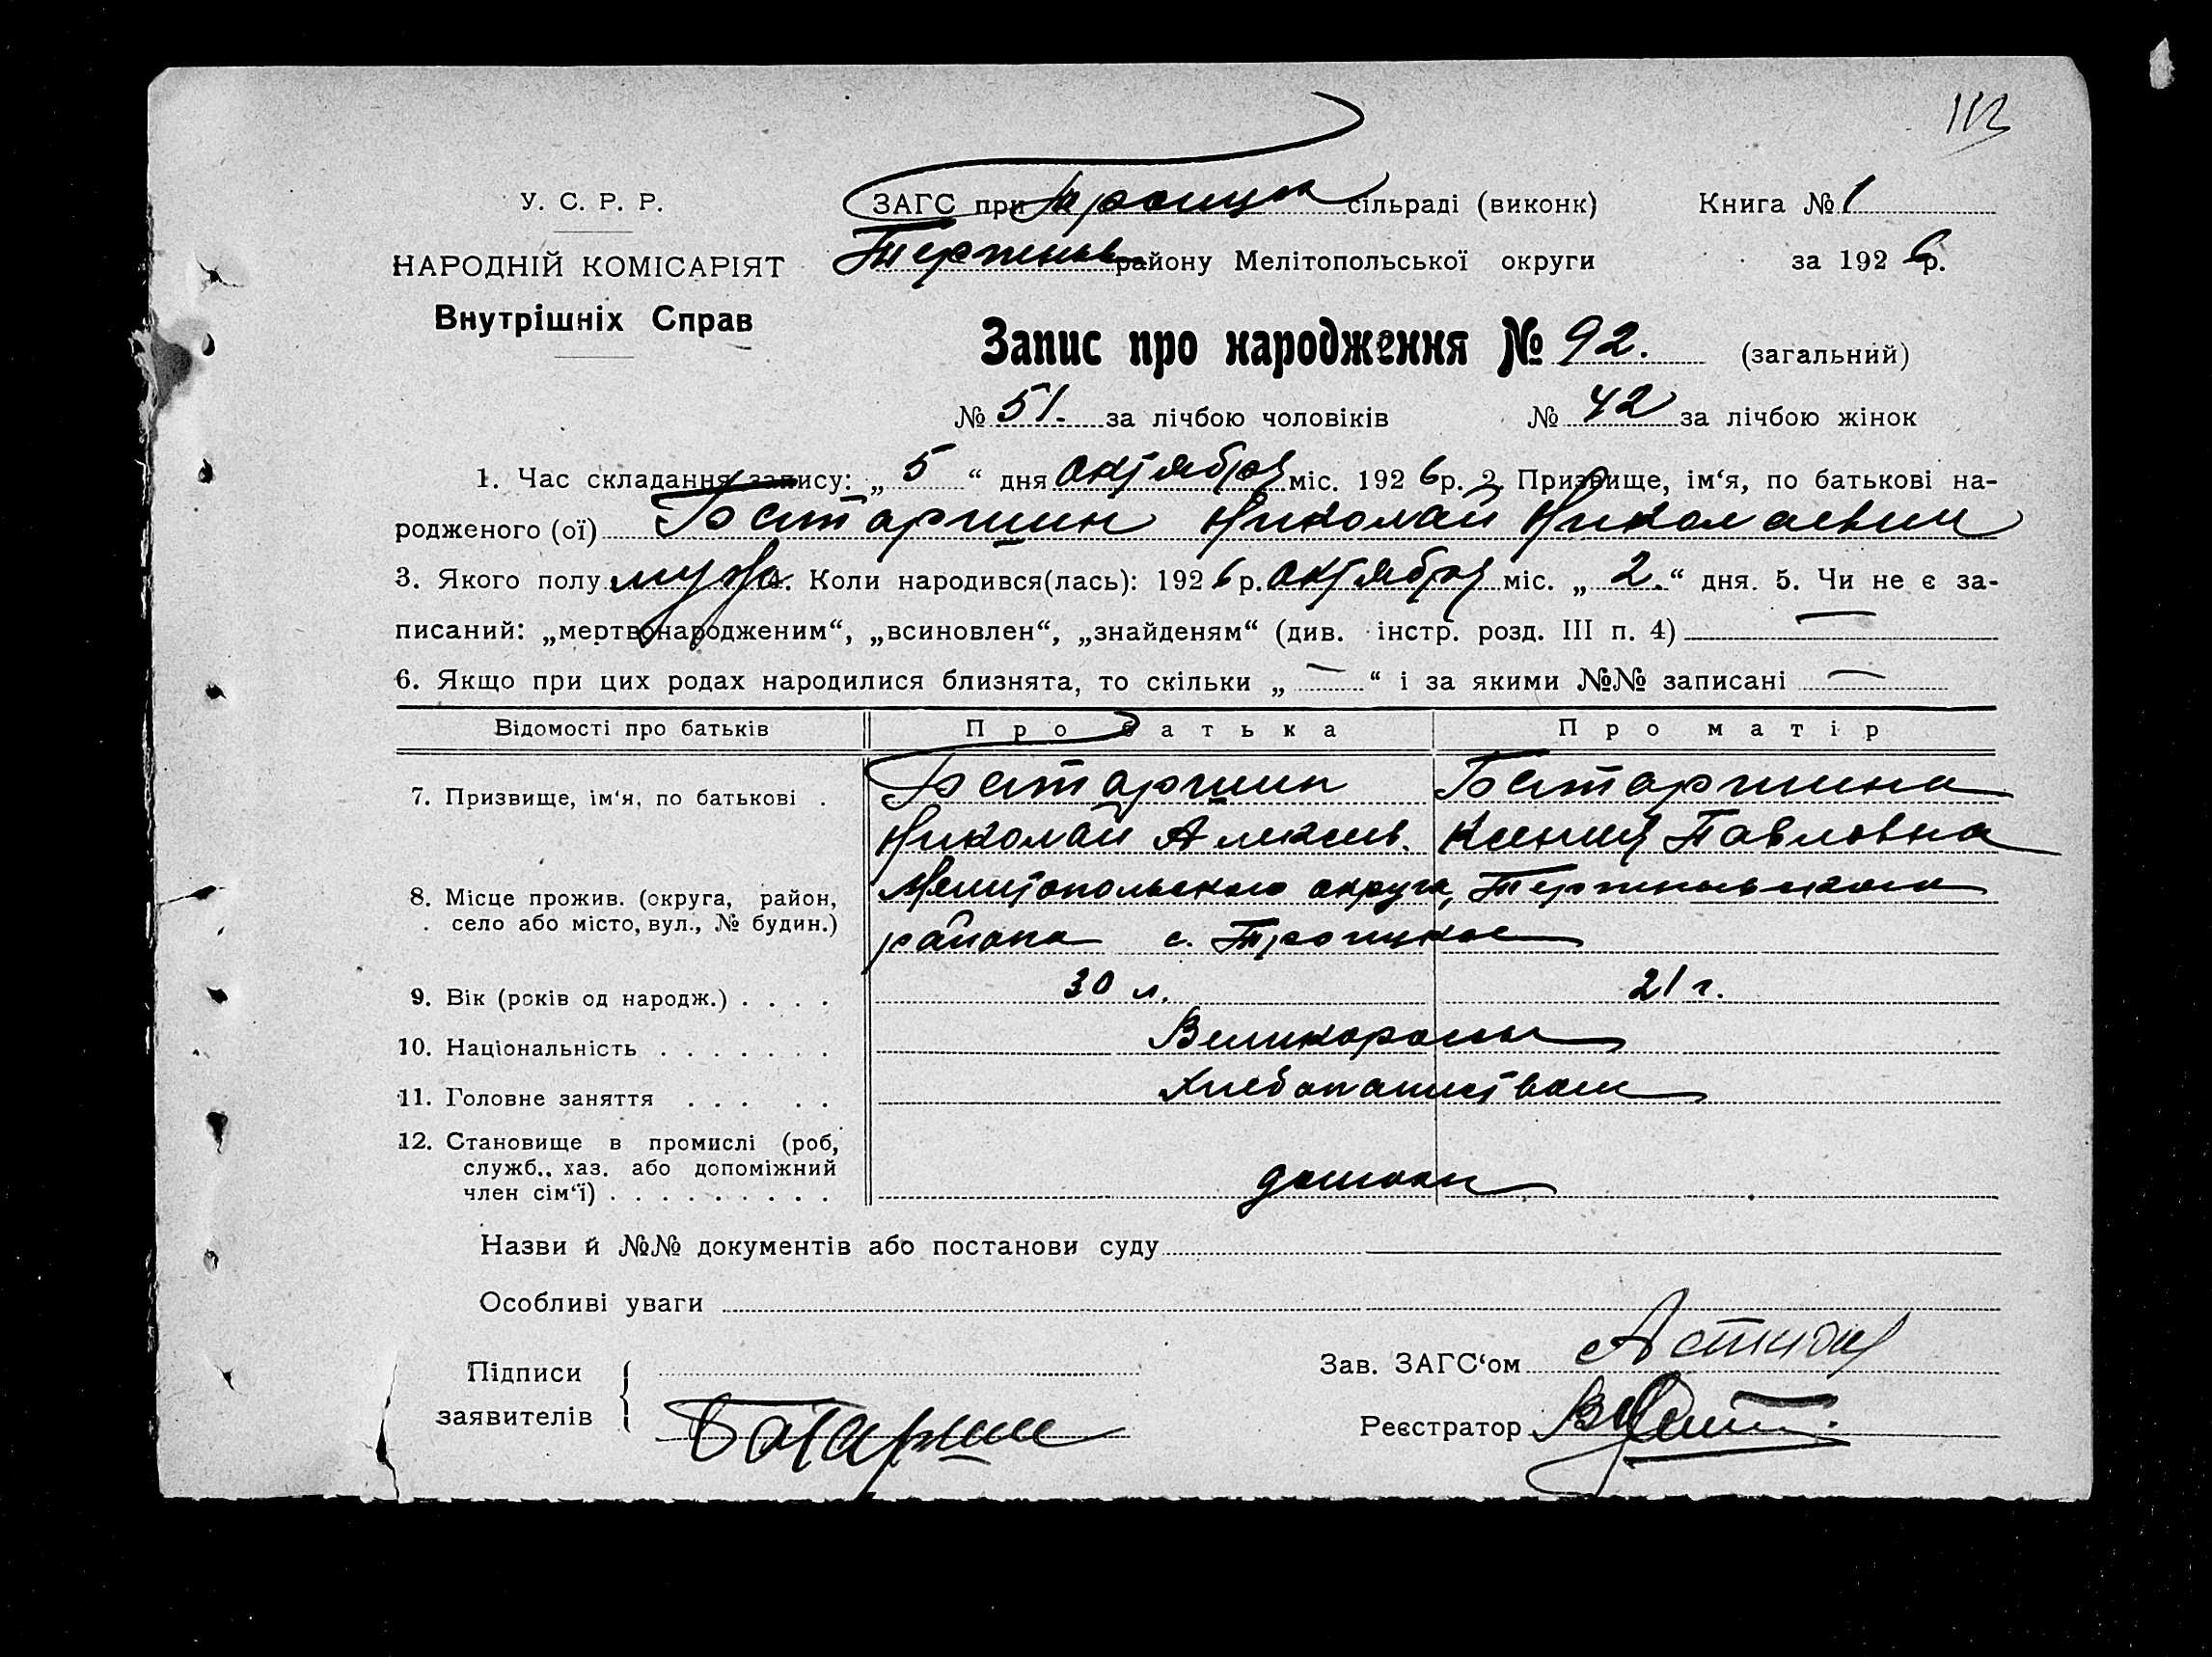 113
У. С. Р. Р.
ЗАГС при Троицк сільраді (виконк) Книга № 1
НАРОДНІЙ КОМІСАРІЯТ
Терпеньев району Мелітопольської округи за 1926 р.
Внутрішніх Справ
Запис про народження № 92. (загальний)
№ 51. за лічбою чоловіків № 42 за лічбою жінок
1. Час складання запису: „ 5 “ дня октября міс. 1926 р. 2. Призвище, ім‘я, по батькові на-
родженого (ої) Батаршин Николай Николаевич
3. Якого полу муж. 4. Коли народився(лась): 1926 р. октября міс. „ 2. “ дня. 5. Чи не є за-
писаний: „мертвонародженим“, „всиновлен“, „знайденям“ (див. інстр. розд. III п. 4) —
6. Якщо при цих родах народилися близнята, то скільки „ — “ і за якими №№ записані —
Відомості про батьків Про батька Про матір
7. Призвище, ім‘я, по батькові . Батаршин Батаршина
Николай Алексеев. Ксения Павловна
8. Місце прожив. (округа, район, село або місто, вул., № будин.) Мелитопольского округа, Терпеньевского
района с. Троицкое
9. Вік (років од народж.) . . . . 30 л. 21 г.
10. Національність . . . . . . . Великороссы
11. Головне заняття . . . . . Хлебопашеством
12. Становище в промислі (роб,
служб., хаз. або допоміжний
член сім‘ї) . . . . . . . . .
Назви й №№ документів або постанови суду
Особливі уваги
Підписи
заявителів
Батаршин
Зав. ЗАГС‘ом
Реєстратор